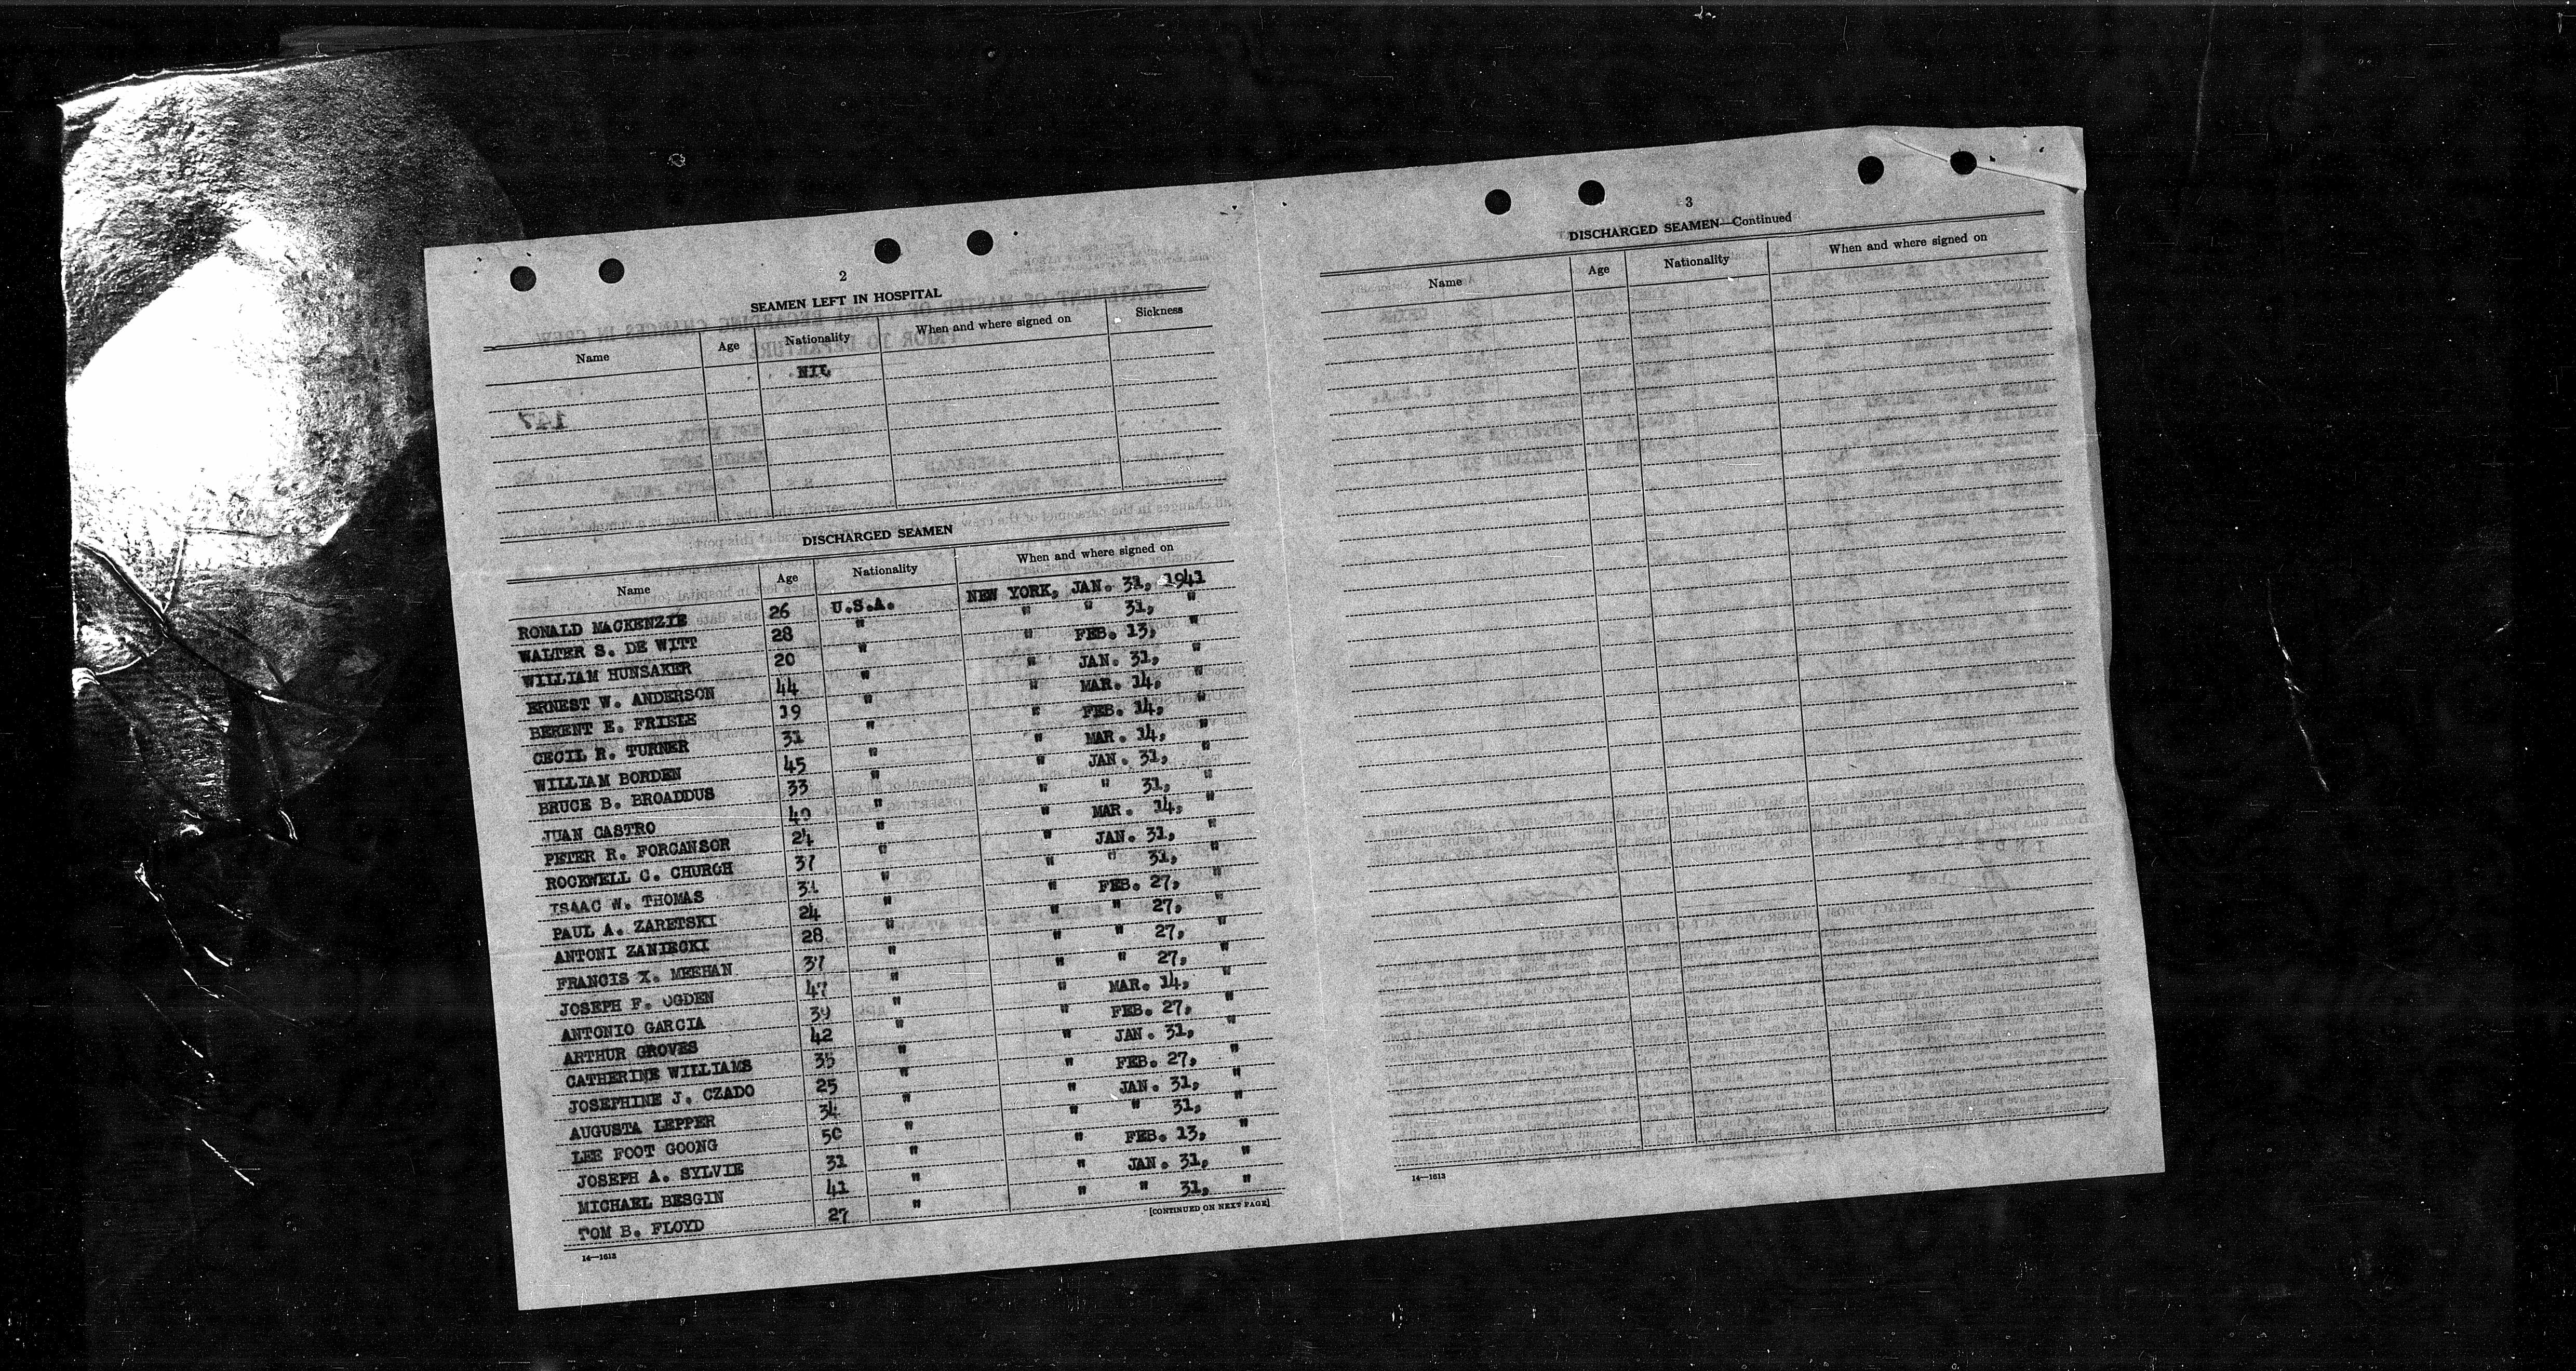 2
SEAMEN LEFT IN HOSPITAL
Name Age Nationality When and where signed on Sickness
NIL
DISCHARGED SEAMEN
Name Age Nationality When and where signed on
RONALD MACKENZIE 26 U.S.A. NEW YORK, JAN. 31, 1941
WALTER S. DE WITT 28 " " " 31, "
WILLIAM HUNSAKER 20 " " FEB. 13, "
ERNEST W. ANDERSON 44 " " JAN. 31, "
BERENT E. FRIELE 19 " " MAR. 14, "
CECIL R. TURNER 31 " " FEB. 14, "
WILLIAM BORDEN 45 " " MAR. 14, "
BRUCE B. BROADDUS 33 " " JAN. 31, "
JUAN CASTRO 40 " " " 31, "
PETER R. FORCANSOR 24 " " MAR. 14, "
ROCKWELL C. CHURCH 37 " " JAN. 31, "
ISAAC W. THOMAS 31 " " " 31, "
PAUL A. ZARETSKI 24 " " FEB. 27, "
ANTONI ZANIECKI 28 " " " 27, "
FRANCIS X. MEEHAN 37 " " " 27, "
JOSEPH F. OGDEN 47 " " " 27, "
ANTONIO GARCIA 39 " " MAR. 14, "
ARTHUR GROVES 42 " " FEB. 27, "
CATHERINE WILLIAMS 35 " " JAN. 31, "
JOSEPHINE J. CZADO 25 " " FEB. 27, "
AUGUSTA LEPPER 34 " " JAN. 31, "
LEE FOOT GOONG 50 " " " 31, "
JOSEPH A. SYLVIE 31 " " FEB. 13, "
MICHAEL BESGIN 41 " " JAN. 31, "
TOM B. FLOYD 27 " " " 31, "
[CONTINUED ON NEXT PAGE]
14—1613
3
DISCHARGED SEAMEN—Continued
Name Age Nationality When and where signed on
14—1613